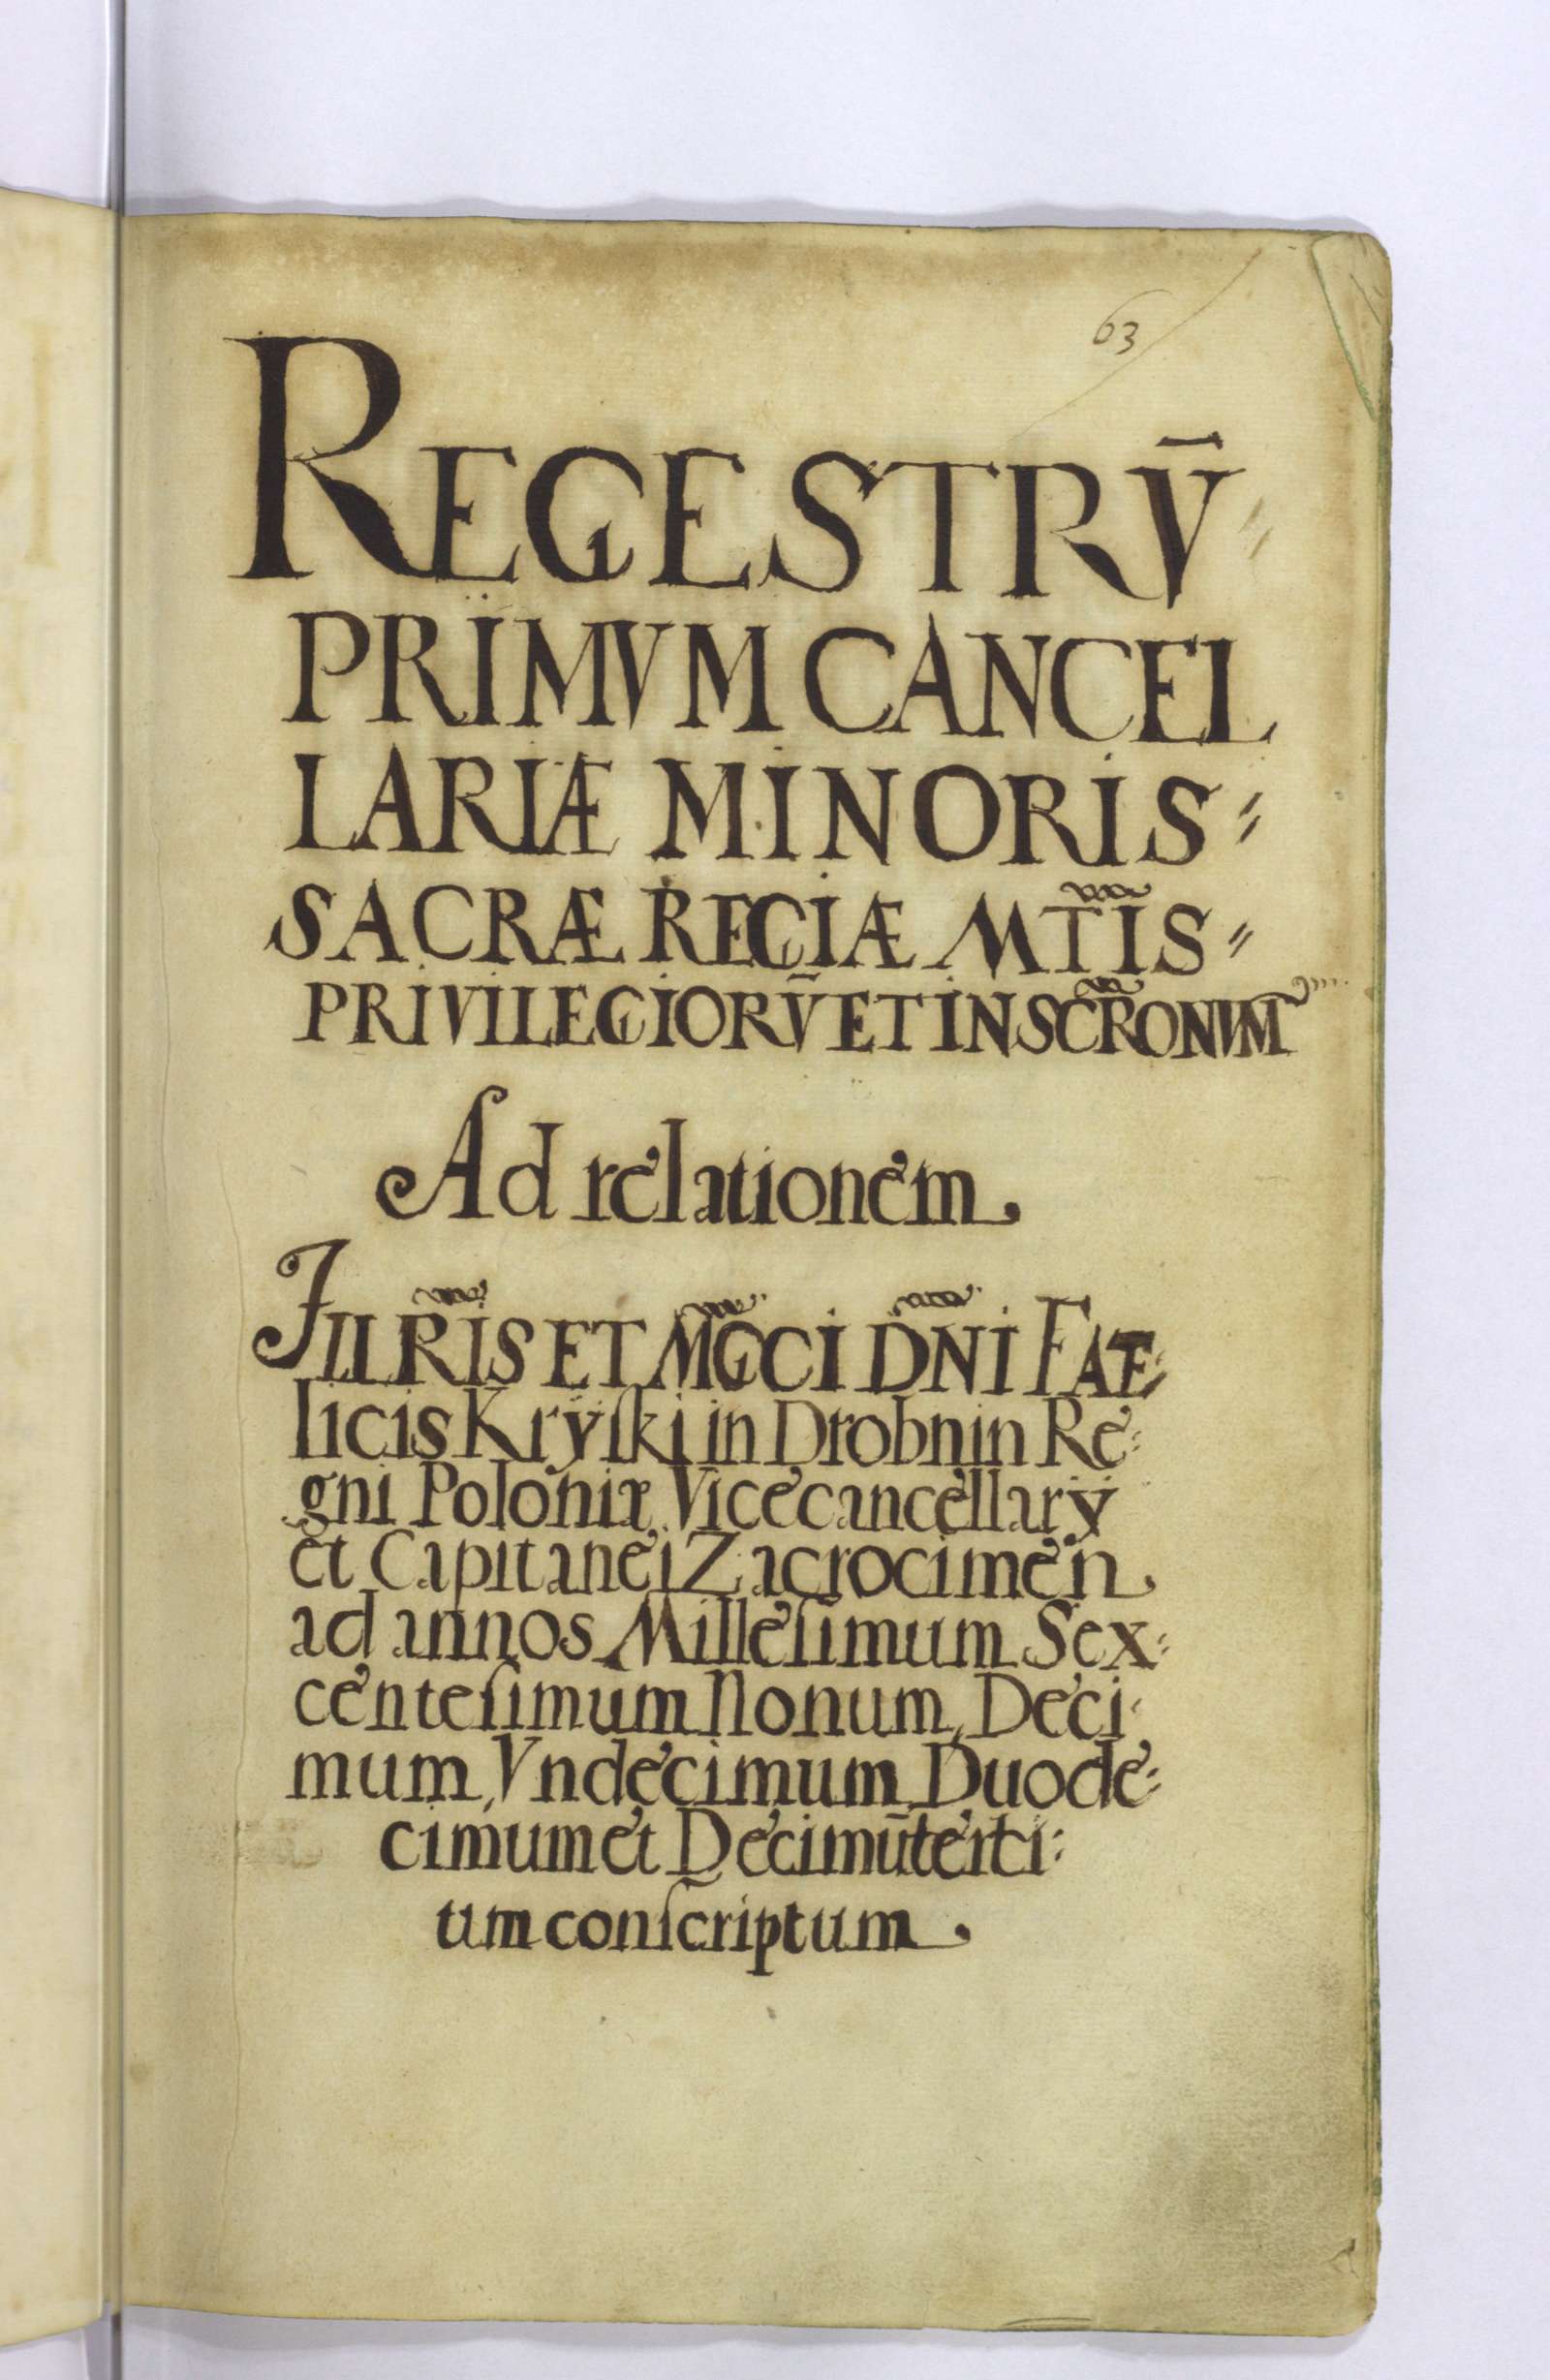 63
REGESTRV̄
PRIMVM CANCEL
LARIÆ MINORIS
SACRÆ REGIÆ MT̃IS
PRIVILEGIORV̄ ET INSCR̃ONVM
Ad relationem
ILLR̃IS ET MG̃CI DÑI FÆ
licis Kryſki in Drobnin Re
gni Poloniæ Vicecancellarÿ
et Capitanei Zacrocimen
ad annos Milleſimum Sex
centeſimum Nonum, Deci
mum, Vndecimum Duode
cimum et Decimū terti
um conſcriptum